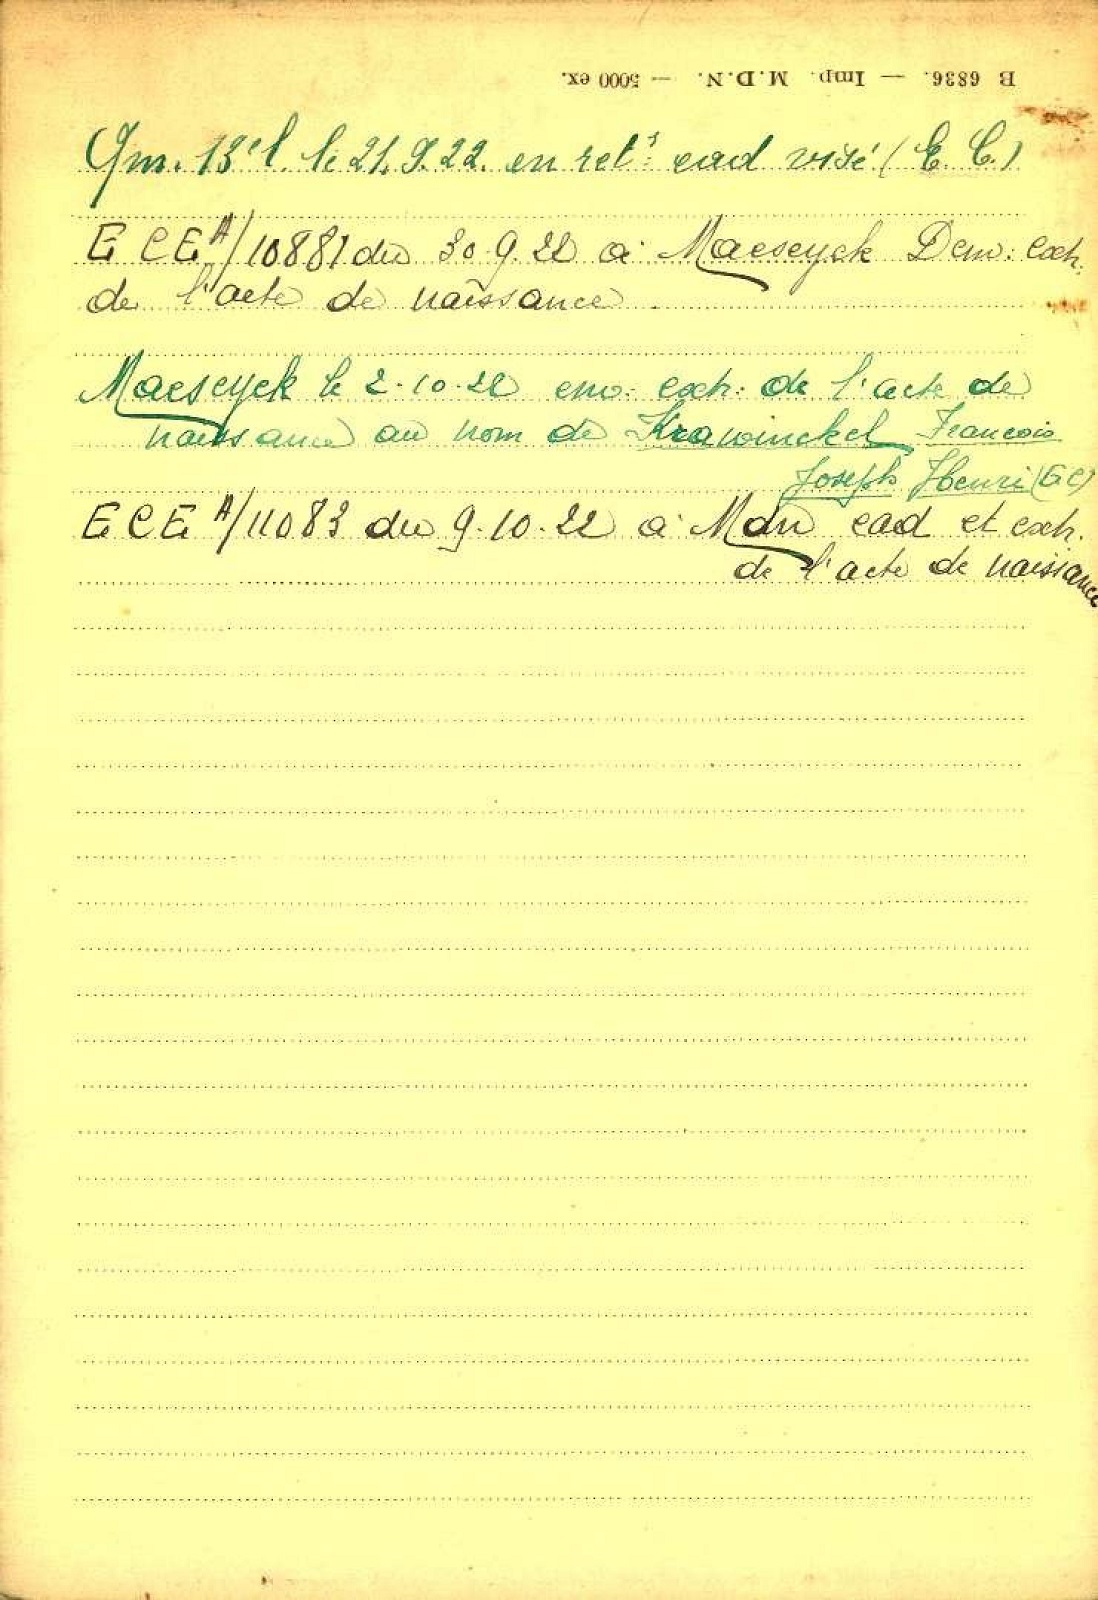 B 6836. — Imp. M.D.N. — 5000 ex.
Qm. 13e l. le 21.9.22. en ret: cad visé (E.C.)
E C E A/10881 du 30.9.22 à Maeseyck Dem: extr.
de l'acte de naissance
Maeseyck le 2-10-22 env: extr: de l'acte de
naissance au nom de Krawinckel Francois
Joseph Henri (EC)
E C E A/11083 du 9-10-22 à Mdn cad et extr.
de l'acte de naissance